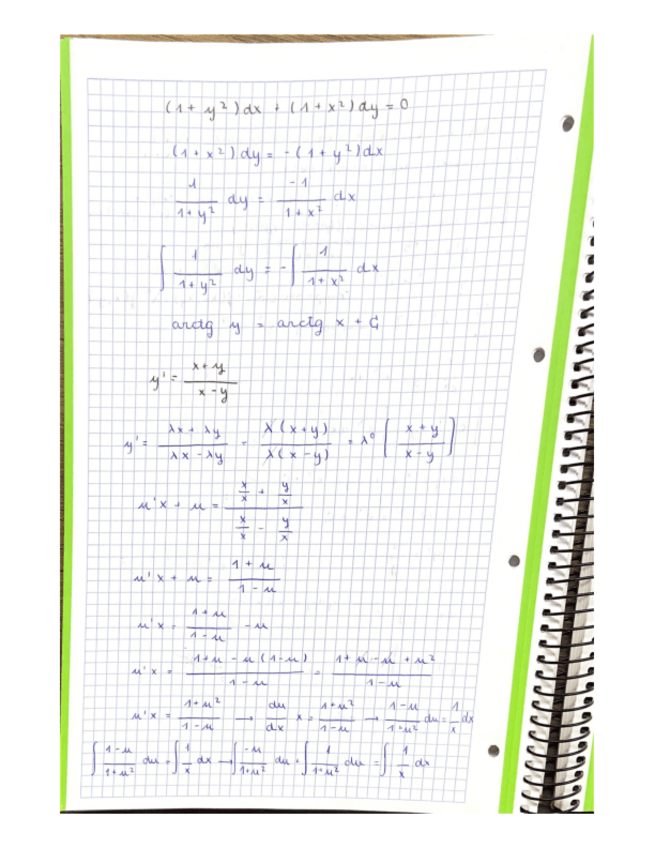 (1 + y²) dx + (1 + x²) dy = 0
(1 + x²) dy = - (1 + y²) dx
1/(1 + y²) dy = -1/(1 + x²) dx
∫ 1/(1 + y²) dy = - ∫ 1/(1 + x²) dx
arctg y = arctg x + C
y' = (x + y)/(x - y)
y' = (λx + λy)/(λx - λy) = λ(x + y)/λ(x - y) = λ⁰ [(x + y)/(x - y)]
u'x + u = (x/x + y/x)/(x/x - y/x)
u'x + u = (1 + u)/(1 - u)
u'x = (1 + u)/(1 - u) - u
u'x = (1 + u - u(1 - u))/(1 - u) = (1 + u - u + u²)/(1 - u)
u'x = (1 + u²)/(1 - u) → du/dx x = (1 + u²)/(1 - u) → (1 - u)/(1 + u²) du = 1/x dx
∫ (1 - u)/(1 + u²) du = ∫ 1/x dx → ∫ -u/(1 + u²) du + ∫ 1/(1 + u²) du = ∫ 1/x dx